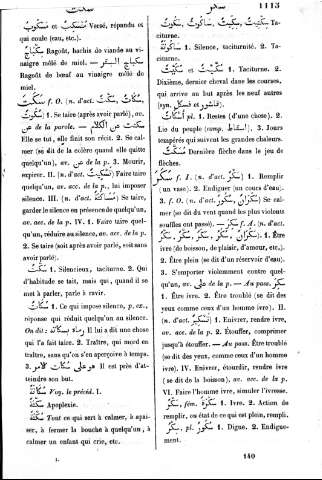 سكت
سكر
1113
مَسْكُوبٌ et مُنْسَكِبٌ Versé, répandu et
qui coule (eau, etc.).
سِكْبَاجٌ Ragoût, hachis de viande au vi-
naigre mêlé de miel. —
Ragoût de bœuf au vinaigre mêlé de
miel.
سَكَتَ f. O. (n. d'act. سَكْتٌ, سُكَاتٌ,
سُكُوتٌ) 1. Se taire (après avoir parlé), av.
عن de la parole. — سكتت عن الكلام
Elle se tut, elle finit son récit. 2. Se cal-
mer (se dit de la colère quand elle quitte
quelqu'un), av. عن de la p. 3. Mourir,
expirer. II. (n. d'act. تَسْكِيتٌ) Faire taire
quelqu'un, av. acc. de la p., lui imposer
silence. III. (n. d'act.) Se taire,
garder le silence en présence de quelqu'un,
av. acc. de la p. IV. 1. Faire taire quel-
qu'un, réduire au silence, av. acc. de la p.
2. Se taire (soit après avoir parlé, soit sans
avoir parlé).
سَكْتٌ 1. Silencieux, taciturne. 2. Qui
d'habitude se tait, mais qui, quand il se
met à parler, parle à ravir.
سُكَاتٌ 1. Ce qui impose silence, p. ex.,
réponse qui réduit quelqu'un au silence.
On dit : رماه بسكاتة Il lui a dit une chose
qui l'a fait taire. 2. Traître, qui mord en
traître, sans qu'on s'en aperçoive à temps.
3. هو على سكات الامر Il est près d'at-
teindre son but.
سُكَاتَةٌ Voy. le précéd. 1.
سَكْتَةٌ Apoplexie.
سُكْتَةٌ Tout ce qui sert à calmer, à apai-
ser, à fermer la bouche à quelqu'un, à
calmer un enfant qui crie, etc.
I.
سَكُوتٌ, سَاكُوتٌ, سِكِّيتٌ Ta-
citurne.
سَاكُوتَةٌ 1. Silence, taciturnité. 2. Ta-
citurne.
سُكَيْتٌ et سُكَّيْتٌ 1. Taciturne. 2.
Dixième, dernier cheval dans les courses,
qui arrive au but après les neuf autres
(syn. فسكل et قاشور).
أَسْكَاتٌ pl. 1. Restes (d'une chose). 2.
Lie du peuple (comp. اسقاط). 3. Jours
tempérés qui suivent les grandes chaleurs.
Dernière flèche dans le jeu de
flèches.
سَكَرَ f. I. (n. d'act. سَكْرٌ) 1. Remplir
(un vase). 2. Endiguer (un cours d'eau).
3. f. O. (n. d'act. سُكُورٌ, سَكَرَانٌ) Se cal-
mer (se dit du vent quand les plus violents
souffles ont passé). — سَكِرَ f. A. (n. d'act.
سَكَرٌ, سُكْرٌ, سُكُرٌ, سَكْرٌ, سَكَرَانٌ) 1. Être
ivre (de boisson, de plaisir, d'amour, etc.).
2. Être plein (se dit d'un réservoir d'eau).
3. S'emporter violemment contre quel-
qu'un, av. على de la p. — Au pass. سُكِرَ
1. Être ivre. 2. Être troublé (se dit des
yeux comme ceux d'un homme ivre). II.
(n. d'act. تَسْكِيرٌ) 1. Enivrer, rendre ivre,
av. acc. de la p. 2. Étouffer, comprimer
jusqu'à étouffer. — Au pass. Être troublé
(se dit des yeux, comme d'un homme
ivre). IV. Enivrer, étourdir, rendre ivre
(se dit de la boisson), av. acc. de la p.
VI. Faire l'homme ivre, simuler l'ivresse.
سَكْرٌ, fém. سَكْرَةٌ 1. Ivre. 2. Action de
remplir, ou état de ce qui est plein, rempli.
سِكْرٌ, pl. سُكُورٌ 1. Digue. 2. Endigue-
ment.
140